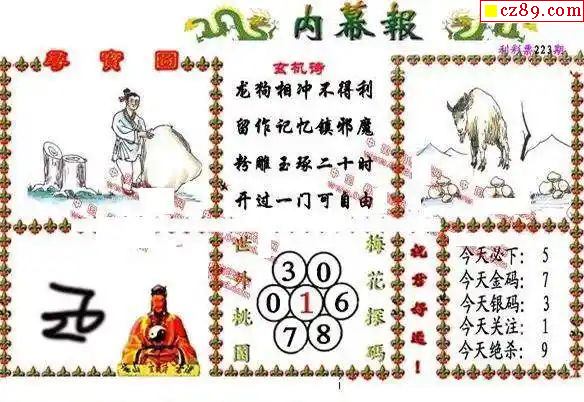 cz89.com
内幕報
寻宝圖
利彩票223期
玄机诗
龙狗相冲不得利
留作记忆镇邪魔
粉雕玉琢二十时
开过一门可自由
世外桃園
3 0
0 1 6
7 8
梅花探碼
祝君好运!
今天必下: 5
今天金码: 7
今天银码: 3
今天关注: 1
今天绝杀: 9